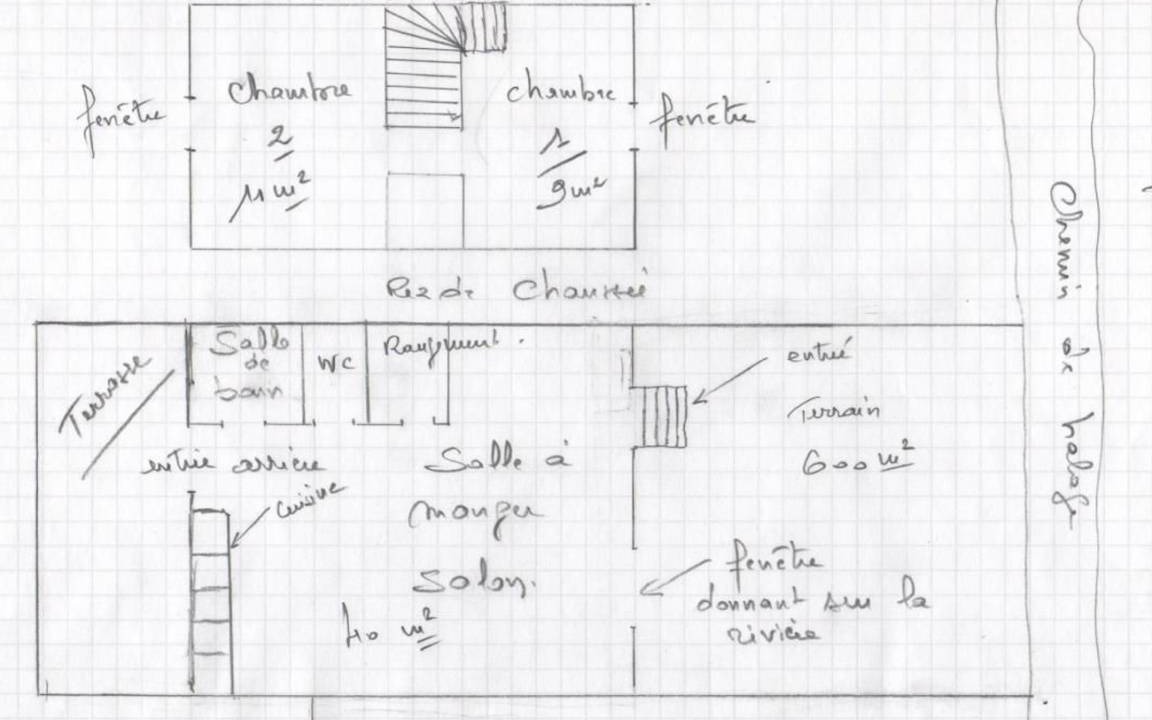 fenêtre
Chambre
2
11 m²
chambre
1
9 m²
fenêtre
Rez de Chaussée
Terrasse
Salle
de
bain
WC
Rangement.
entrée
Terrain
600 m²
entrée arrière
cuisine
Salle à
manger
Salon.
40 m²
fenêtre
donnant sur la
rivière
Chemins de halage